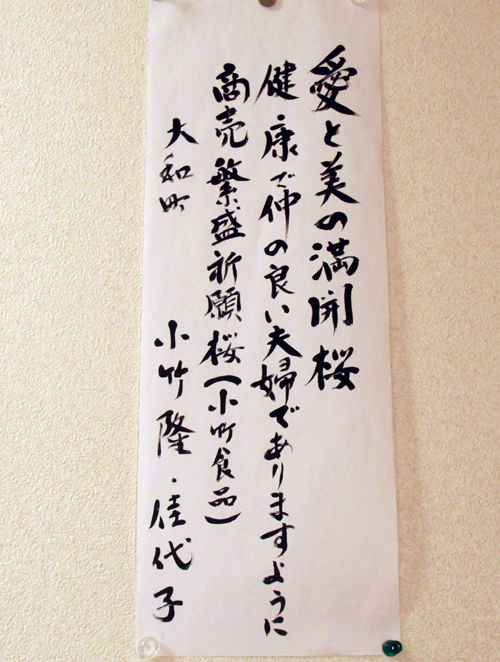 愛と美の満開桜
健康で仲の良い夫婦でありますように
商売繁盛祈願桜(小町食品)
大和町
小竹隆・佳代子